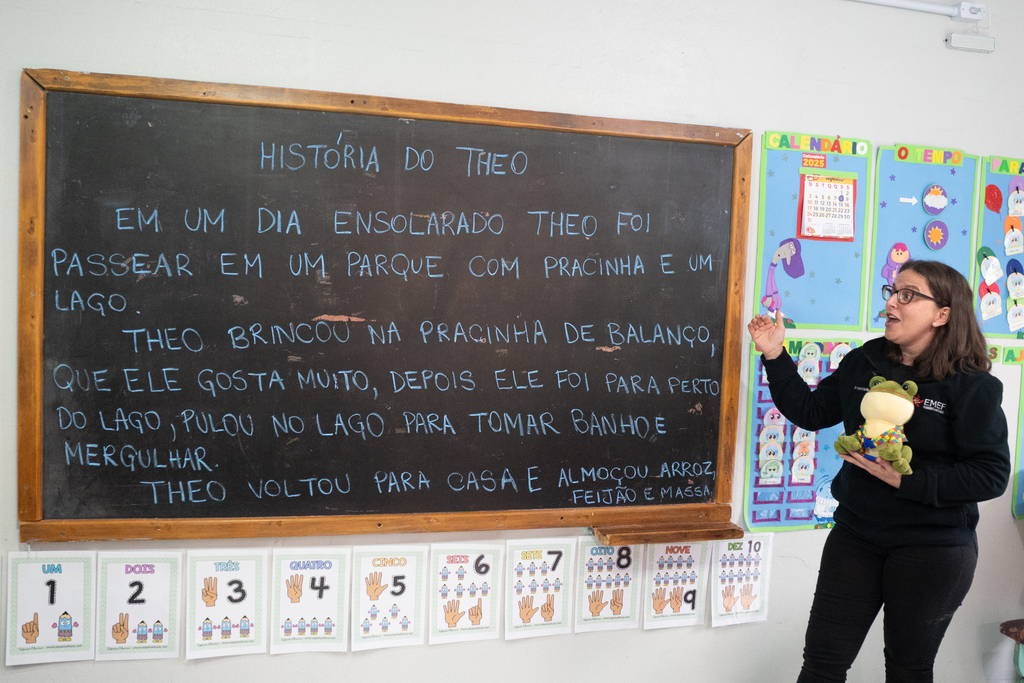 HISTÓRIA DO THEO
EM UM DIA ENSOLARADO THEO FOI
PASSEAR EM UM PARQUE COM PRACINHA E UM
LAGO.
THEO BRINCOU NA PRACINHA DE BALANÇO,
QUE ELE GOSTA MUITO, DEPOIS ELE FOI PARA PERTO
DO LAGO, PULOU NO LAGO PARA TOMAR BANHO E
MERGULHAR.
THEO VOLTOU PARA CASA E ALMOÇOU ARROZ,
FEIJÃO E MASSA.
CALENDÁRIO
Calendário
2025
O TEMPO
EMEF
UM 1
DOIS 2
TRÊS 3
QUATRO 4
CINCO 5
SEIS 6
SETE 7
OITO 8
NOVE 9
DEZ 10